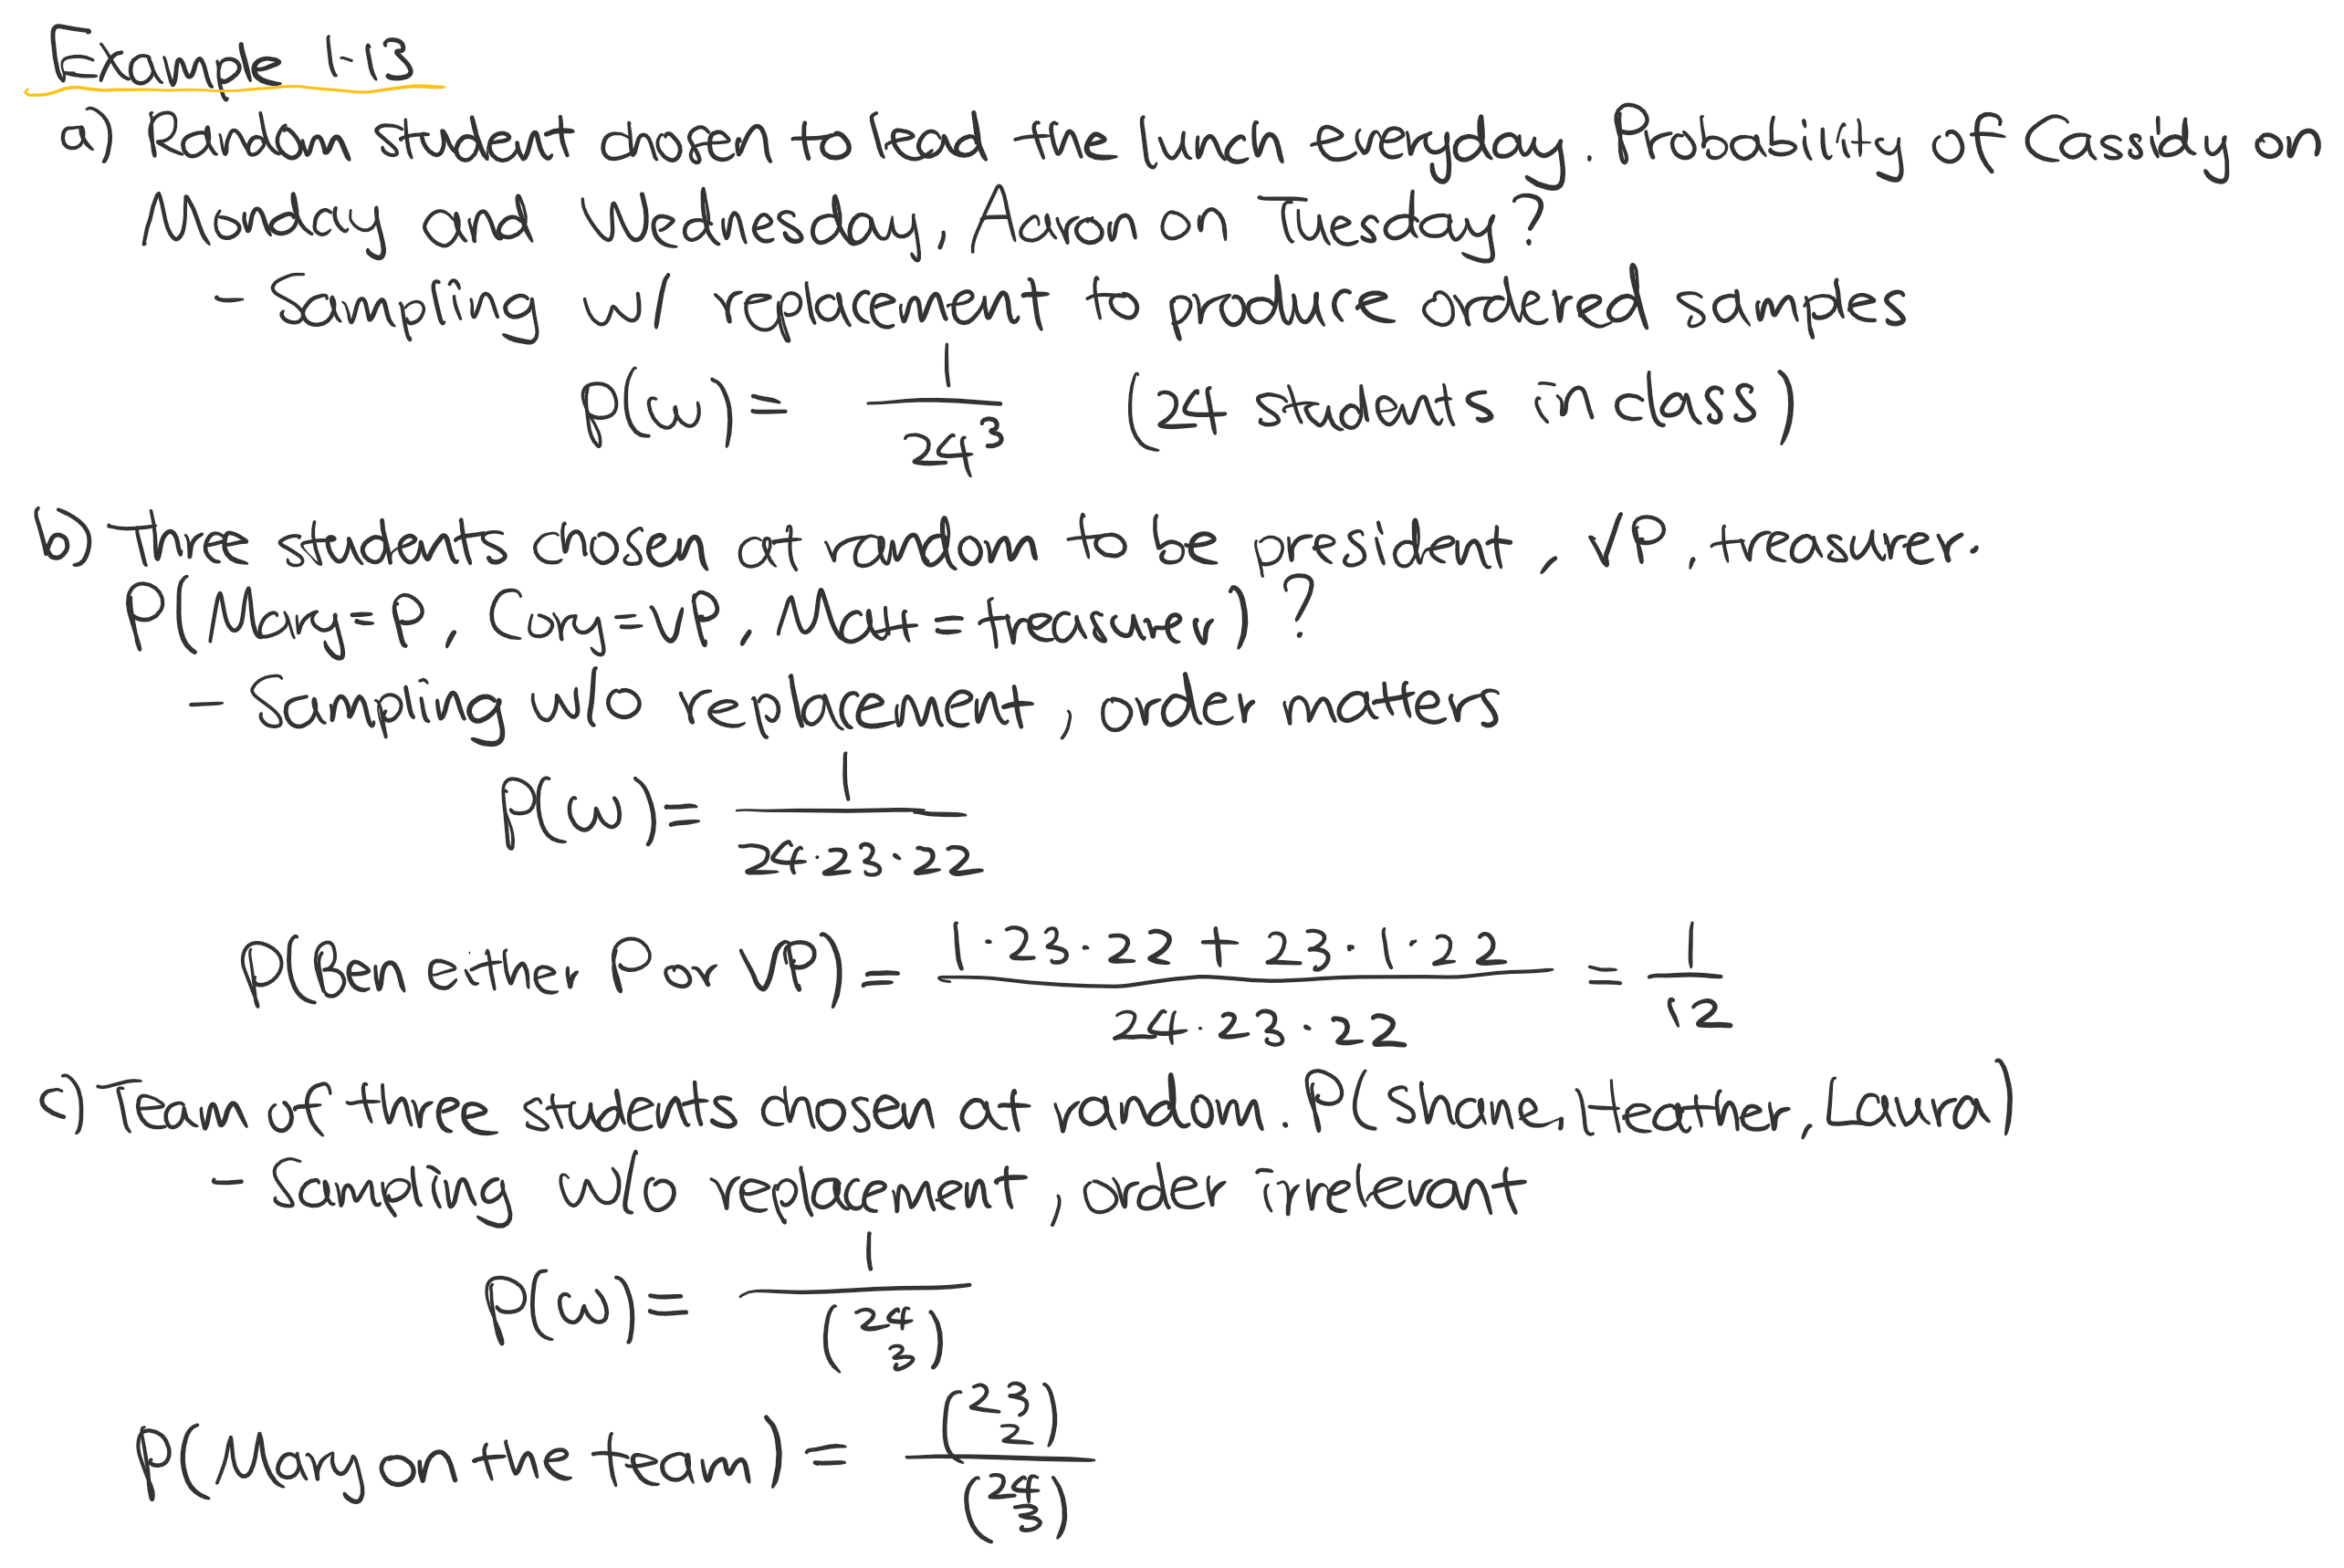 Example 1-13
a) Random student chosen to lead the lunch everyday. Probability of Cassidy on
Monday and Wednesday, Aaron on Tuesday?
- Sampling w/ replacement to produce ordered samples
P(ω) = 1/24³ (24 students in class)
b) Three students chosen at random to be president, VP, treasurer.
P(Mary=P, Cory=VP, Matt=treasurer)?
- Sampling w/o replacement, order matters
P(ω) = 1/(24·23·22)
P(Ben either P or VP) = (1·23·22 + 23·1·22)/(24·23·22) = 1/12
c) Team of three students chosen at random. P(Shane, Heather, Laura)
- Sampling w/o replacement, order irrelevant
P(ω) = 1/(24 3)
P(Mary on the team) = (23 2)/(24 3)